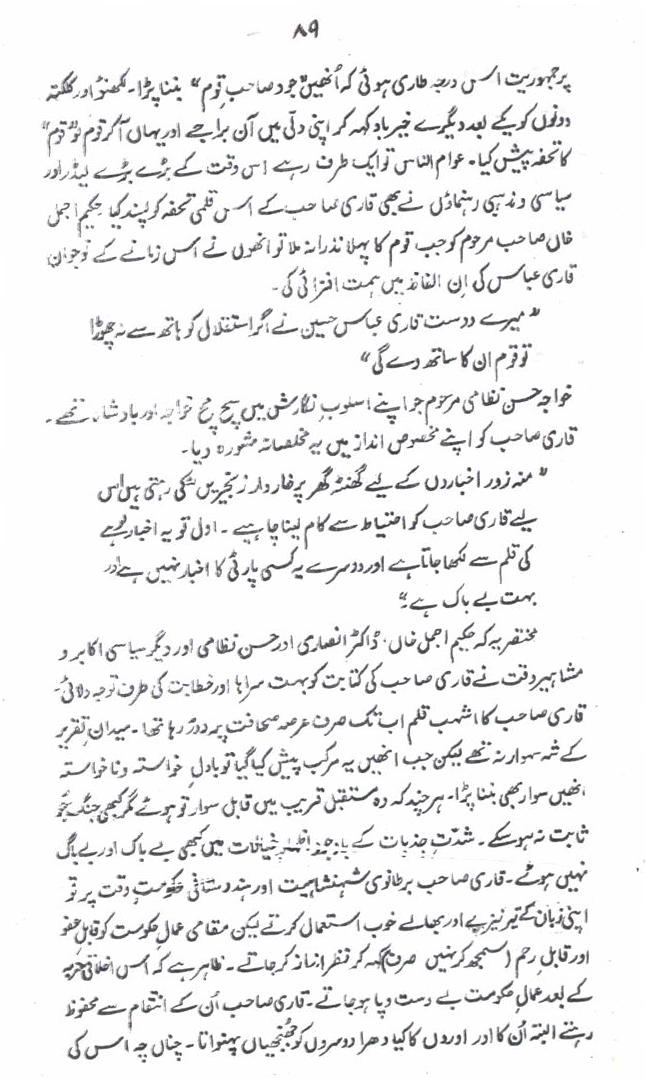 ۸۹
پر جمہوریت اس درجہ طاری ہوئی کہ اُنھیں خود صاحبِ قوم" بننا پڑا۔ لکھنؤ اور کلکتہ
دونوں کو یکے بعد دیگرے خیرباد کہہ کر اپنی دلّی میں آن براجے اور یہاں آکر قوم کو "قوم"
کا تحفہ پیش کیا۔ عوام الناس تو ایک طرف رہے اس وقت کے بڑے بڑے لیڈر اور
سیاسی و مذہبی رہنماؤں نے بھی قاری صاحب کے اس قلمی تحفہ کو پسند کیا حکیم اجمل
خاں صاحب مرحوم کو جب قوم کا پہلا نذرانہ ملا تو انھوں نے اس زمانے کے نوجوان
قاری عباس کی اِن الفاظ میں ہمت افزائی کی۔
"میرے دوست قاری عباس حسین نے اگر استقلال کو ہاتھ سے نہ چھوڑا
تو قوم ان کا ساتھ دے گی"
خواجہ حسن نظامی مرحوم جو اپنے اسلوبِ نگارش میں سچ مچ خواجہ اور بادشاہ تھے۔
قاری صاحب کو اپنے مخصوص انداز میں یہ مخلصانہ مشورہ دیا۔
"منہ زور اخباروں کے لیے گھنٹہ گھر پر خاردار زنجیریں لٹکی رہتی ہیں اس
لیے قاری صاحب کو احتیاط سے کام لینا چاہیے۔ اول تو یہ اخبار لوہے
کی قلم سے لکھا جاتا ہے اور دوسرے یہ کسی پارٹی کا اخبار نہیں ہے اور
بہت بے باک ہے۔"
مختصر یہ کہ حکیم اجمل خاں، ڈاکٹر انصاری اور حسن نظامی اور دیگر سیاسی اکابر و
مشاہیر وقت نے قاری صاحب کی کتابت کو بہت سراہا اور خطابت کی طرف توجہ دلائی۔
قاری صاحب کا اشہب قلم اب تک صرف عرصہ صحافت پر دوڑ رہا تھا۔ میدانِ تقریر
کے شہ سوار نہ تھے لیکن جب انھیں یہ مرکب پیش کیا گیا تو بادلِ خواستہ و ناخواستہ
انھیں سوار بھی بننا پڑا۔ ہر چند کہ وہ مستقبل قریب میں قابل سوار تو ہوئے مگر کبھی جنگجو
ثابت نہ ہو سکے۔ شدّتِ جذبات کے باوجود اظہارِ خیالات میں کبھی بے باک اور بے باگ
نہیں ہوئے۔ قاری صاحب برطانوی شہنشاہیت اور ہندوستانی حکومتِ وقت پر تو
اپنی زبان کے تیر نیزے اور بھالے خوب استعمال کرتے لیکن مقامی عمالِ حکومت کو قابلِ عفو
اور قابلِ رحم (سمجھ کر نہیں صرف) کہہ کر نظر انداز کر جاتے۔ ظاہر ہے کہ اس اخلاقی حربہ
کے بعد عمالِ حکومت بے دست و پا ہو جاتے۔ قاری صاحب اُن کے انتقام سے محفوظ
رہتے البتہ اُن کا اور اوروں کا کیا دھرا دوسروں کو پہنواتا۔ چناں چہ اس کی